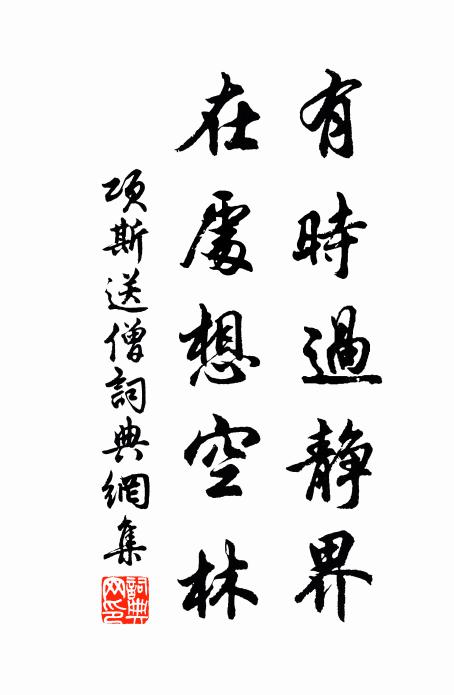 有時過静界
在處想空林
項斯送僧詞典網集
詞典網印